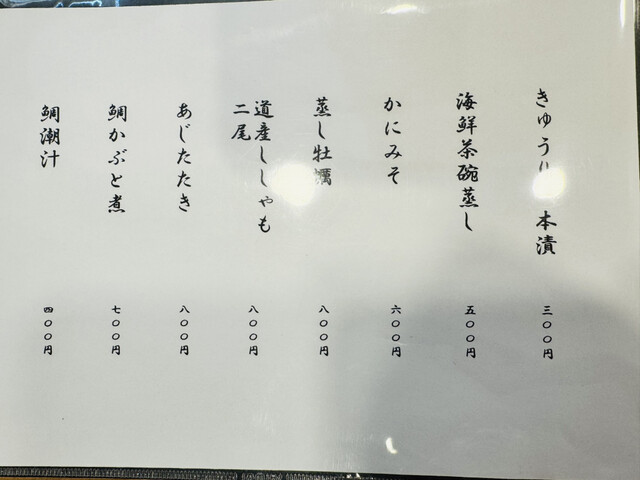 きゅうり 本漬
三〇〇円
海鮮茶碗蒸し
五〇〇円
かにみそ
六〇〇円
蒸し牡蠣
八〇〇円
道産ししゃも
二尾
八〇〇円
あじたたき
八〇〇円
鯛かぶと煮
七〇〇円
鯛潮汁
四〇〇円